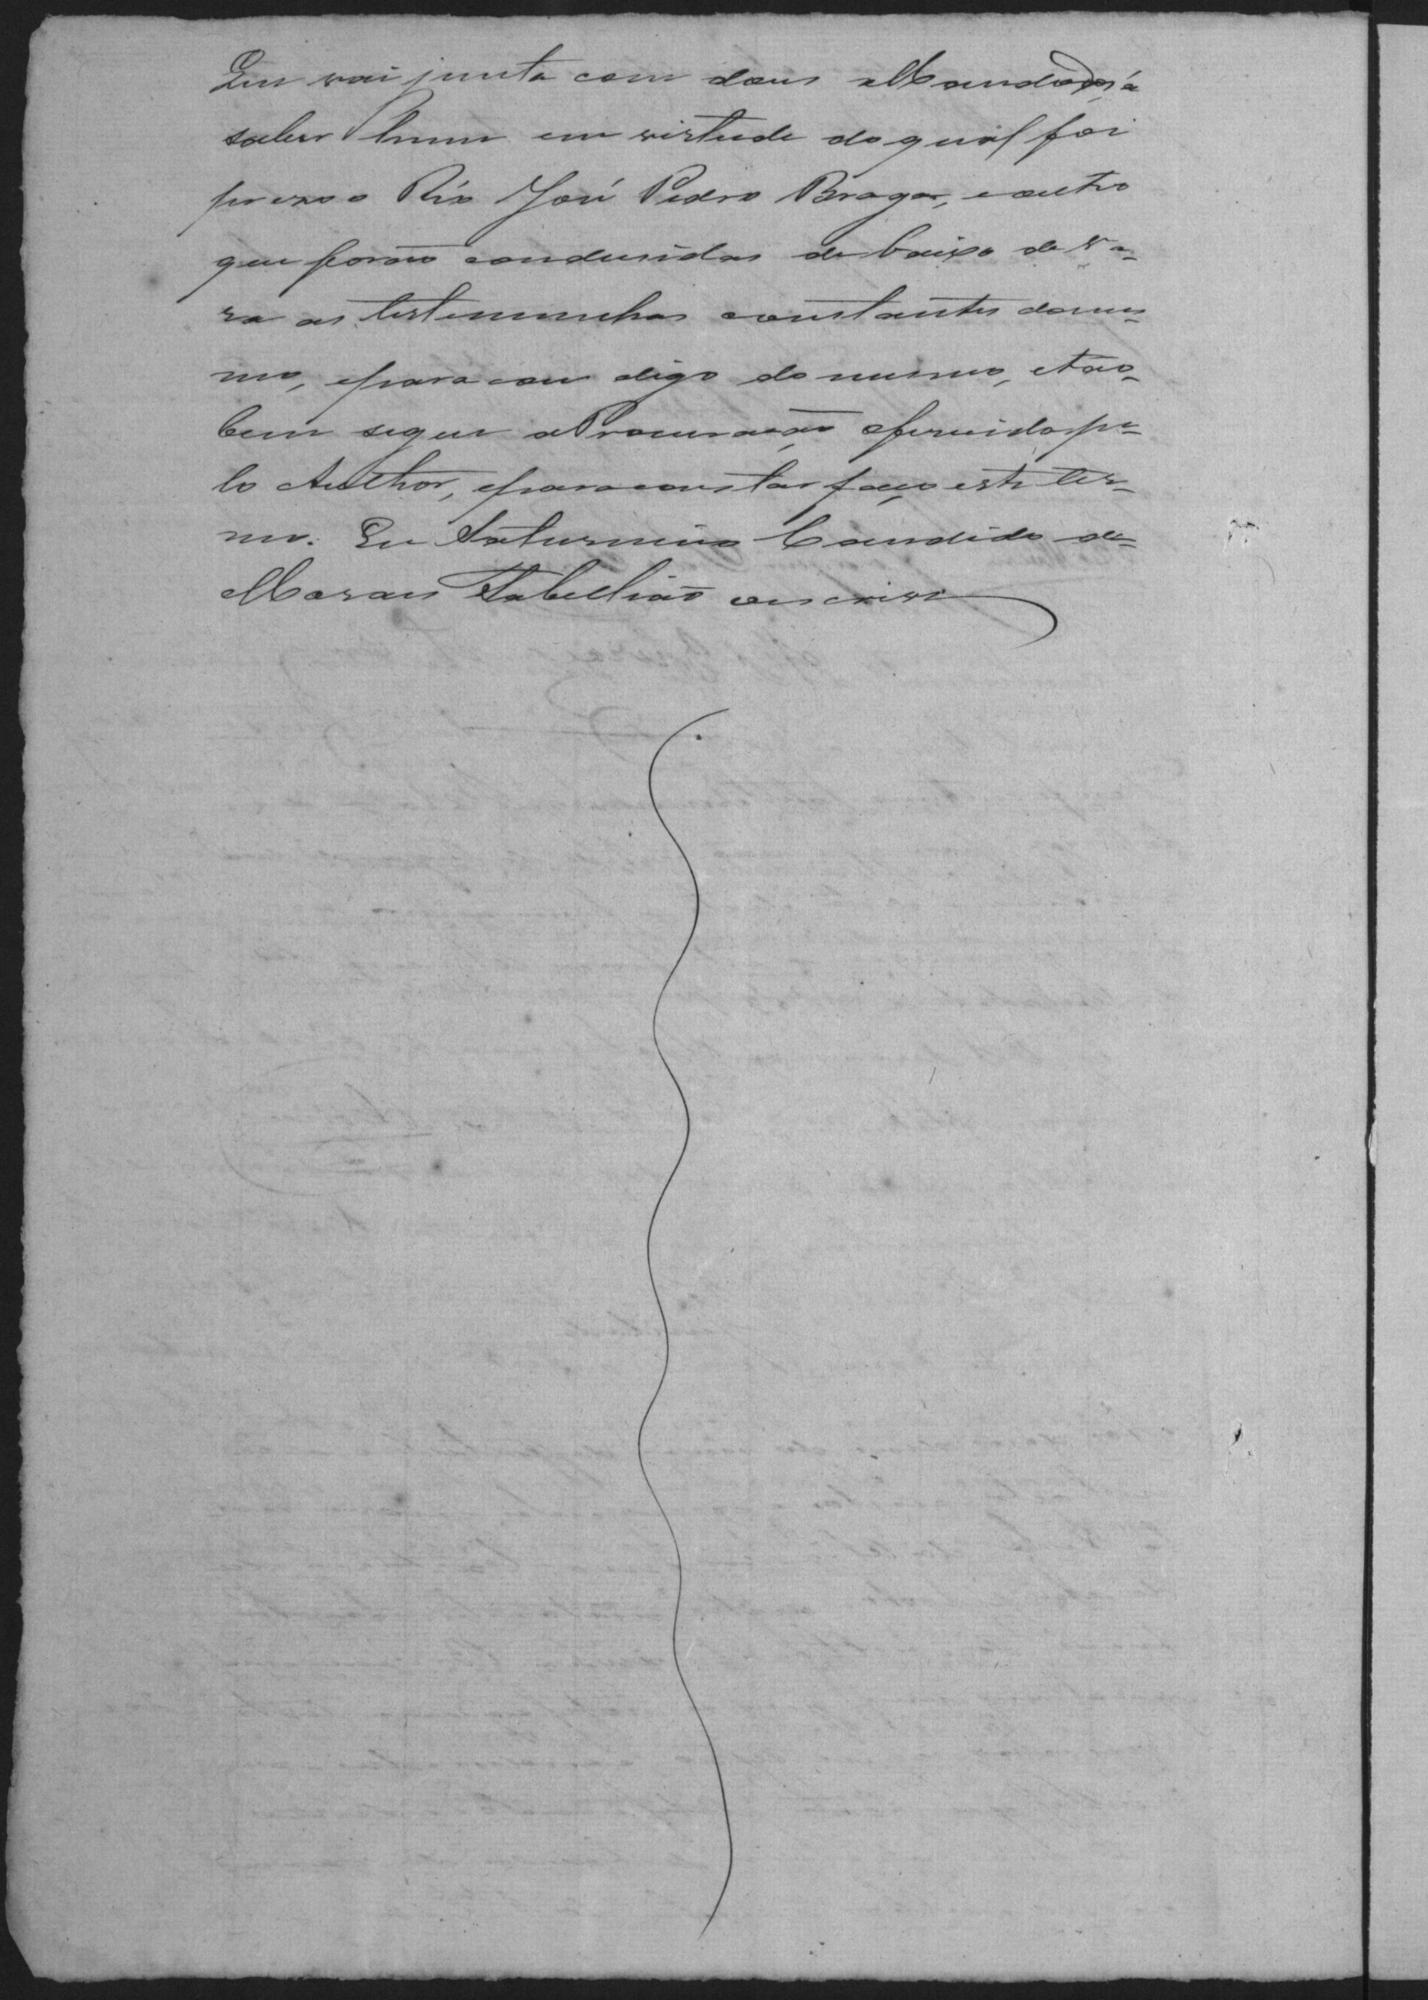 Que vai junta com dous Mandados, á
saber hum em virtude do qual foi
prezo o Réo José Pedro Braga, e outro
que forão condusidas de baixo de va=
ra as testemunhas constantes do mes=
mo, epara con digo do mesmo, etão=
bem segue a Procuração oferecida pe=
lo Author, epara constar faço este ter=
mo. Eu Saturnino Candido de=
Moraes Tabellião oescrevi